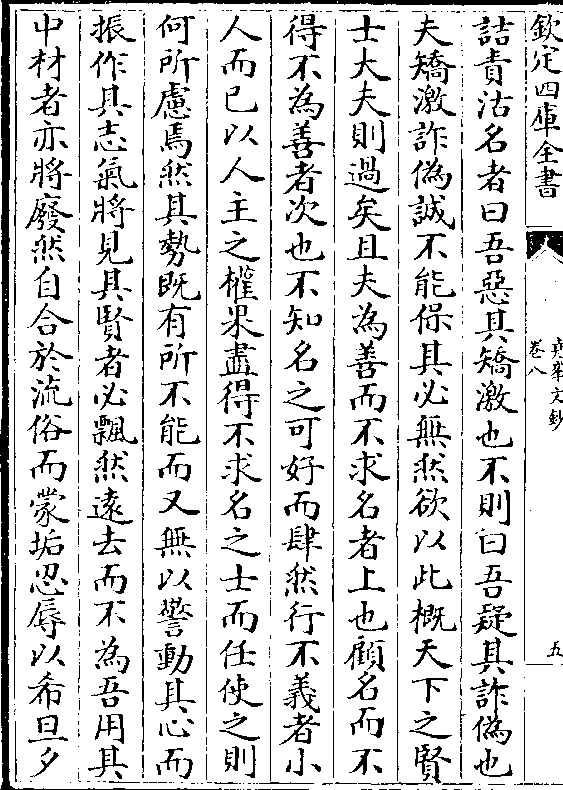 欽定四庫全書
堯峯文鈔
卷八
五
詰責沽名者曰吾惡其矯激也不則曰吾疑其詐偽也
夫矯激詐偽誠不能保其必無然欲以此概天下之賢
士大夫則過矣且夫為善而不求名者上也顧名而不
得不為善者次也不知名之可好而肆然行不義者小
人而已以人主之權果盡得不求名之士而任使之則
何所慮焉然其勢既有所不能而又無以警動其心而
振作其志氣將見其賢者必飄然遠去而不為吾用其
中材者亦將廢然自合於流俗而蒙垢忍辱以希旦夕